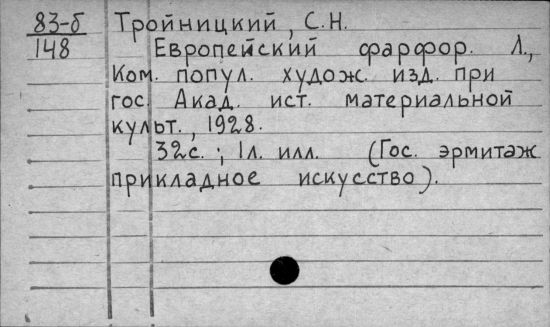 83-б Тройницкий, С.Н.
148 Европейский фарфор. Л.,
Ком. попул. худож. изд. при
гос. Акад. ист. материальной
культ., 1928.
32с.; 1л. илл. (Гос. эрмитаж
прикладное искусство).